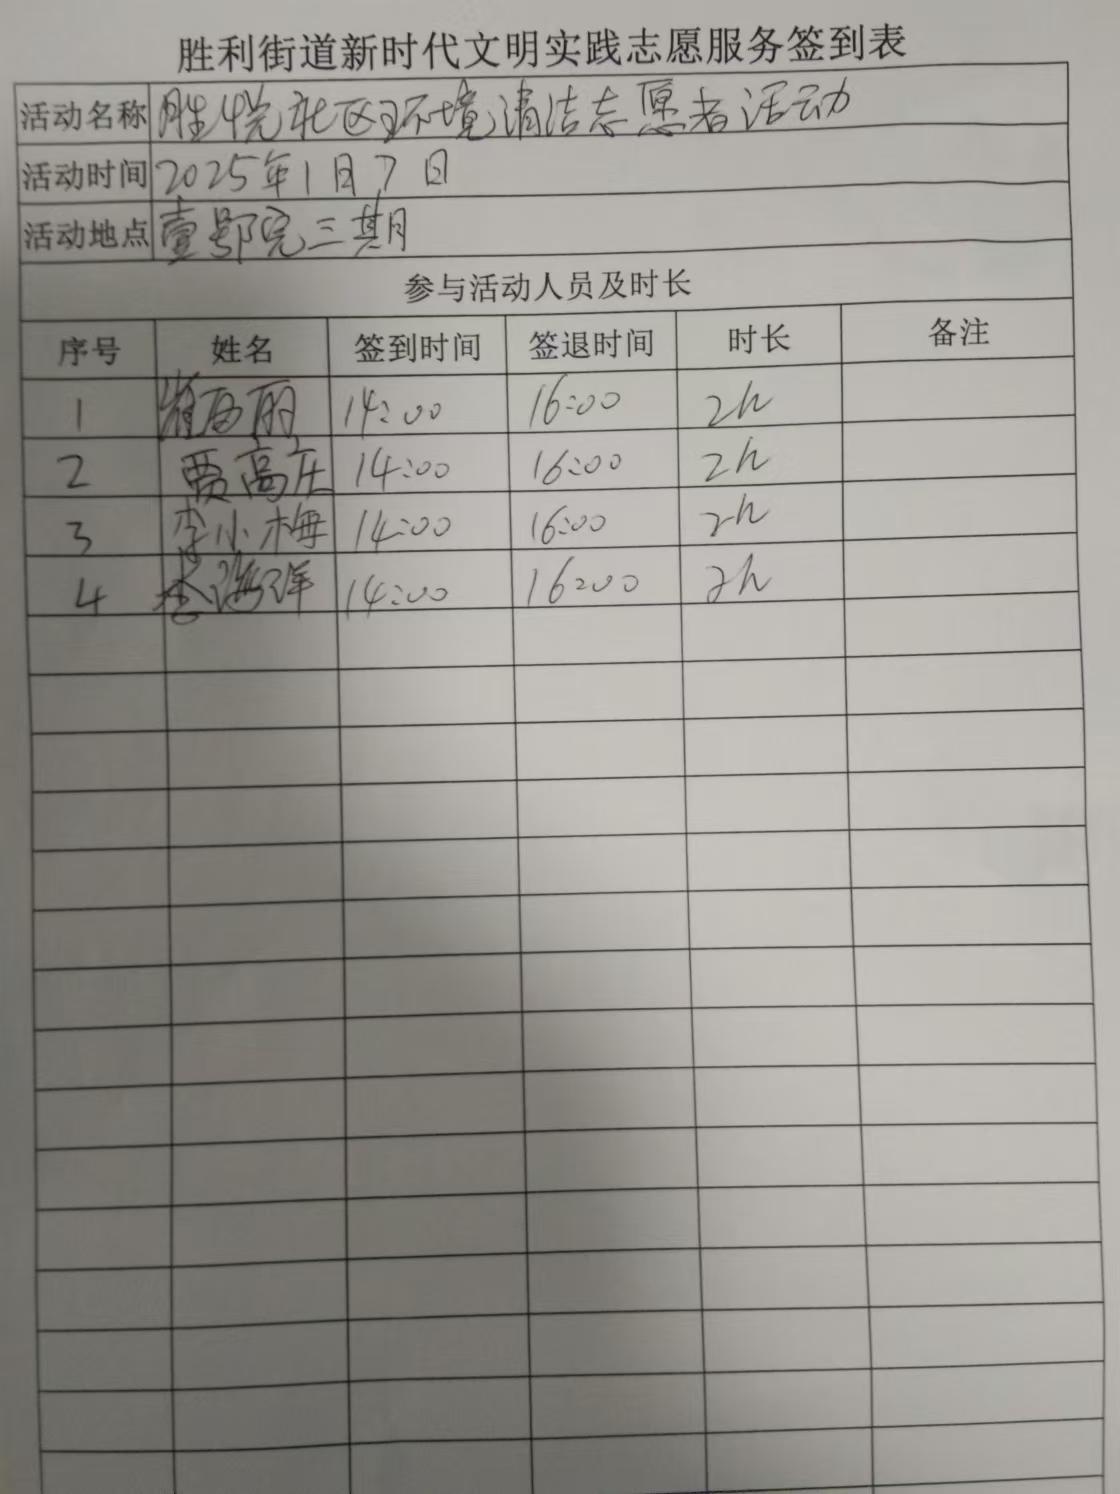 胜利街道新时代文明实践志愿服务签到表
活动名称 胜悦社区环境清洁志愿者活动
活动时间 2025年1月7日
活动地点 壹号院三期
参与活动人员及时长
序号 姓名 签到时间 签退时间 时长 备注
1 14:00 16:00 2h
2 贾高庄 14:00 16:00 2h
3 李小梅 14:00 16:00 2h
4 李海洋 14:00 16:00 2h